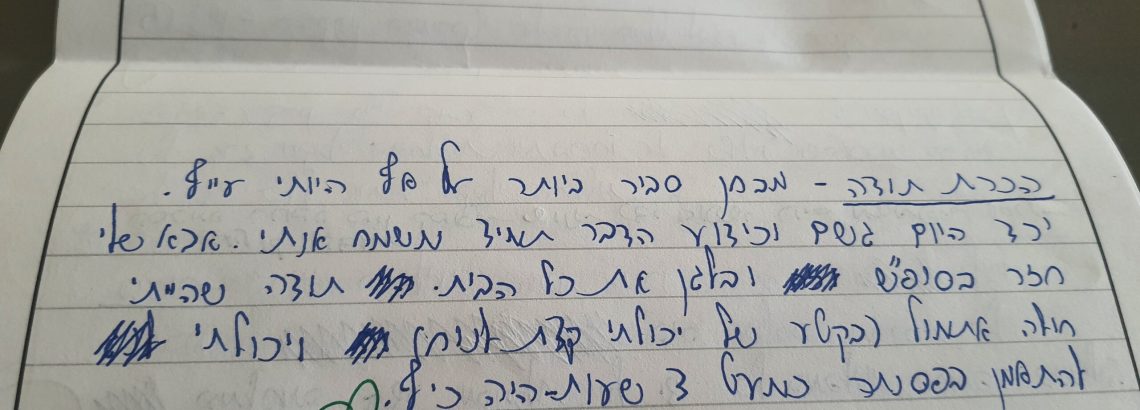 הכרת תודה - מבחן סביר ביותר על אף היותי עייף.
ירד היום גשם וכידוע הדבר תמיד משמח אותי. אבא שלי
חזר בסופ"ש ובלגן את כל הבית. תודה שהייתי
חולה אתמול (בקטע של יכולתי קצת לנוח) ויכולתי
להתאמן בפסנתר כמעט 3 שעות-היה כיף.